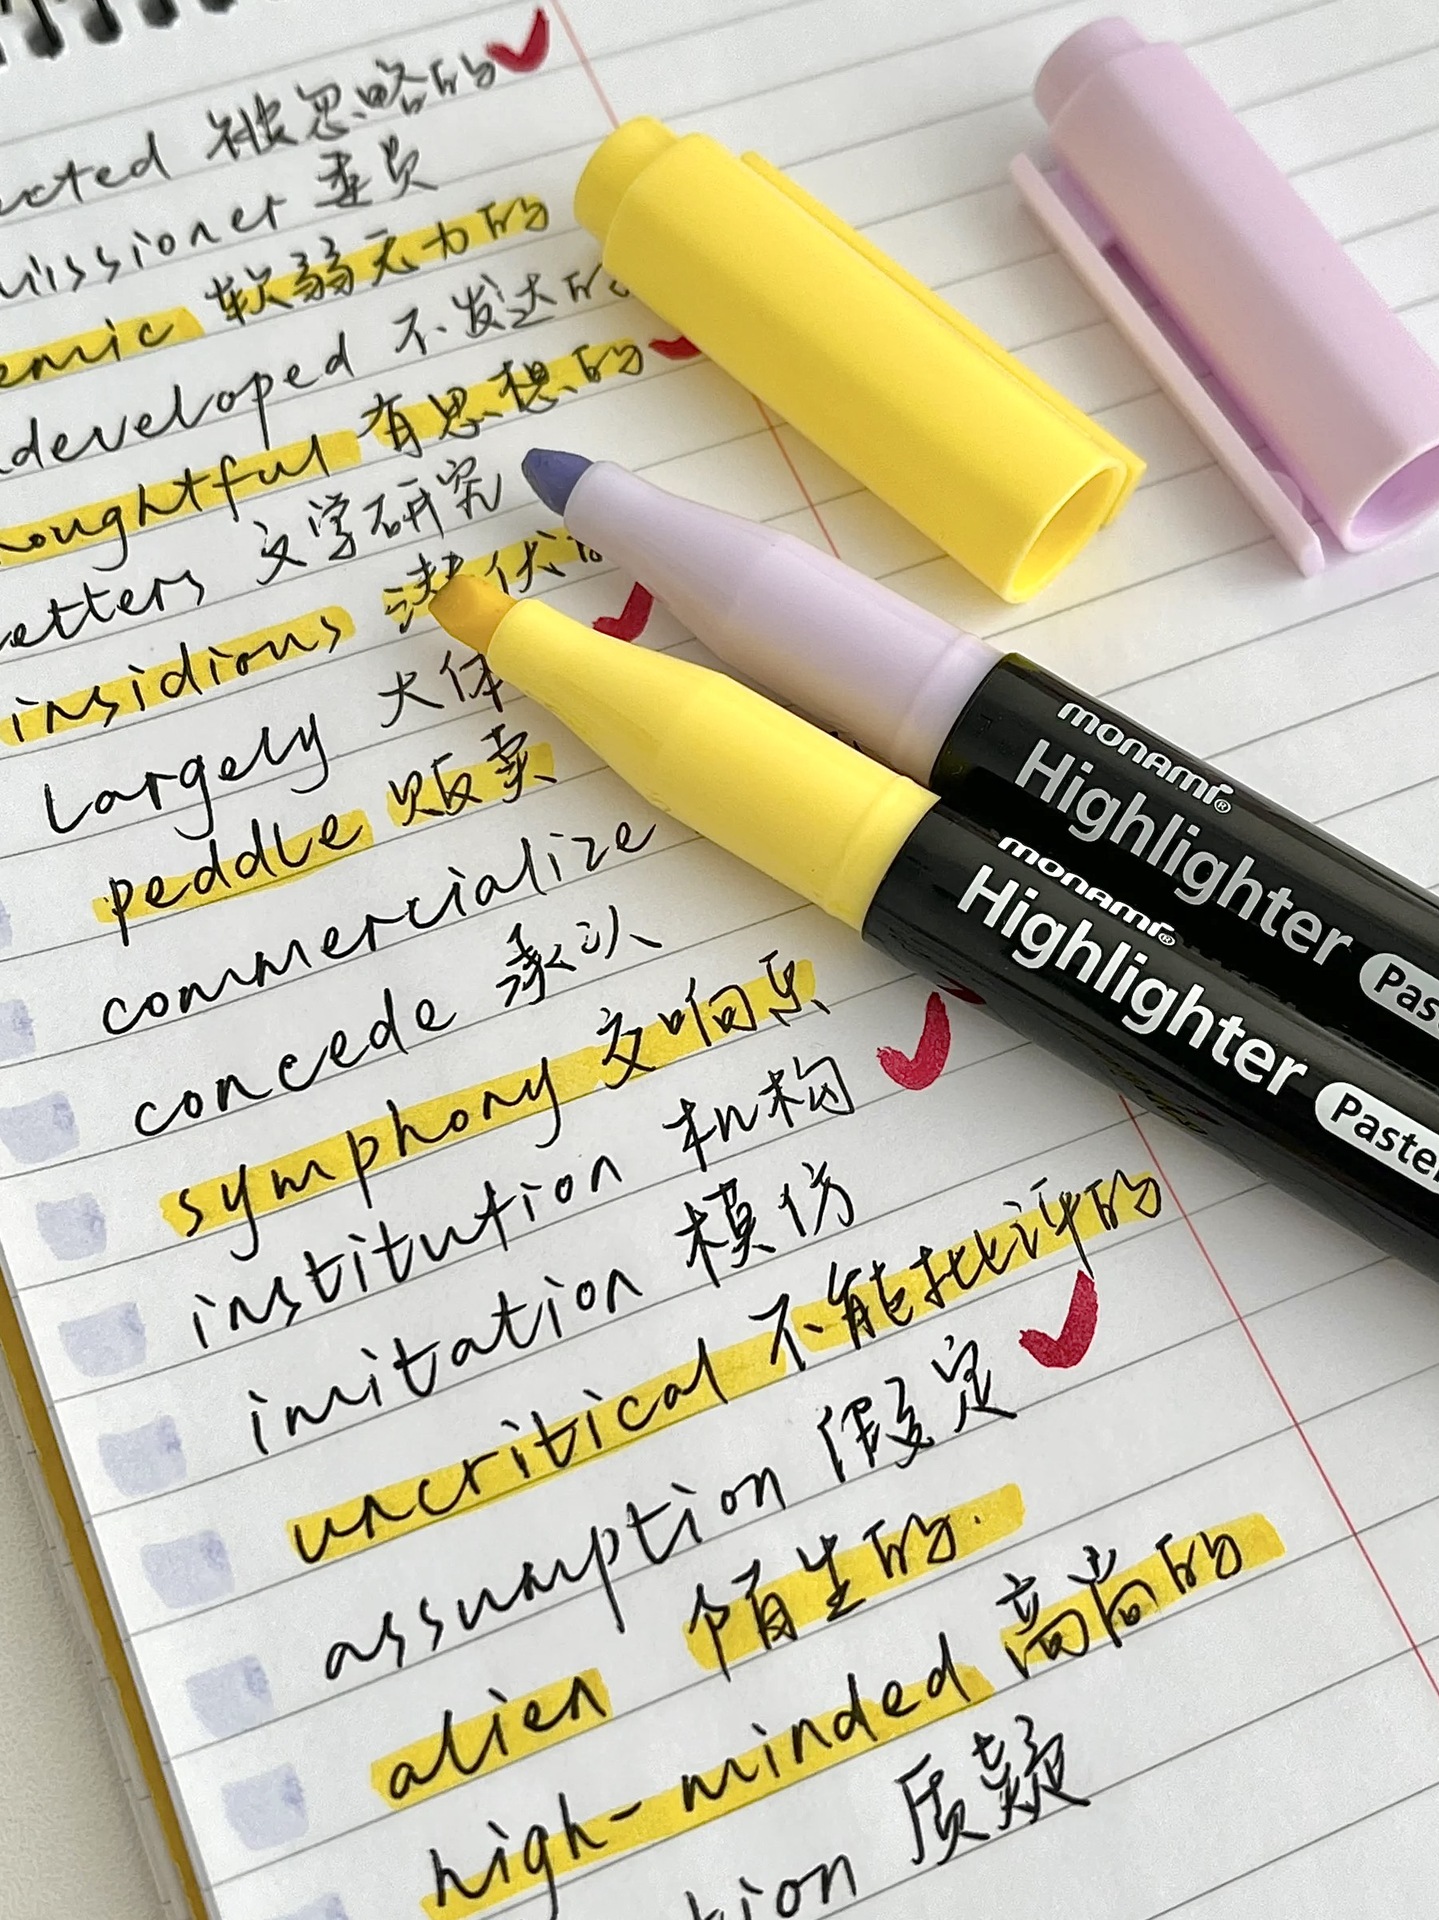 被忽略的
委员
软弱无力的
developed 不发达的
thoughtful 有思想的
letters 文学研究
insidious 潜伏
largely 大体
peddle 贩卖
commercialize
concede 承认
symphony 交响乐
institution 机构
imitation 模仿
uncritical 不能批评的
assumption 假定
alien 陌生的.
high-minded 高尚的
质疑
monami®
Highlighter
monami®
Highlighter